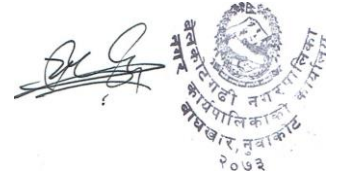 बेलकोटगढी नगरपालिका
नगर कार्यपालिकाको कार्यालय
बाघखोर, नुवाकोट
२०७३